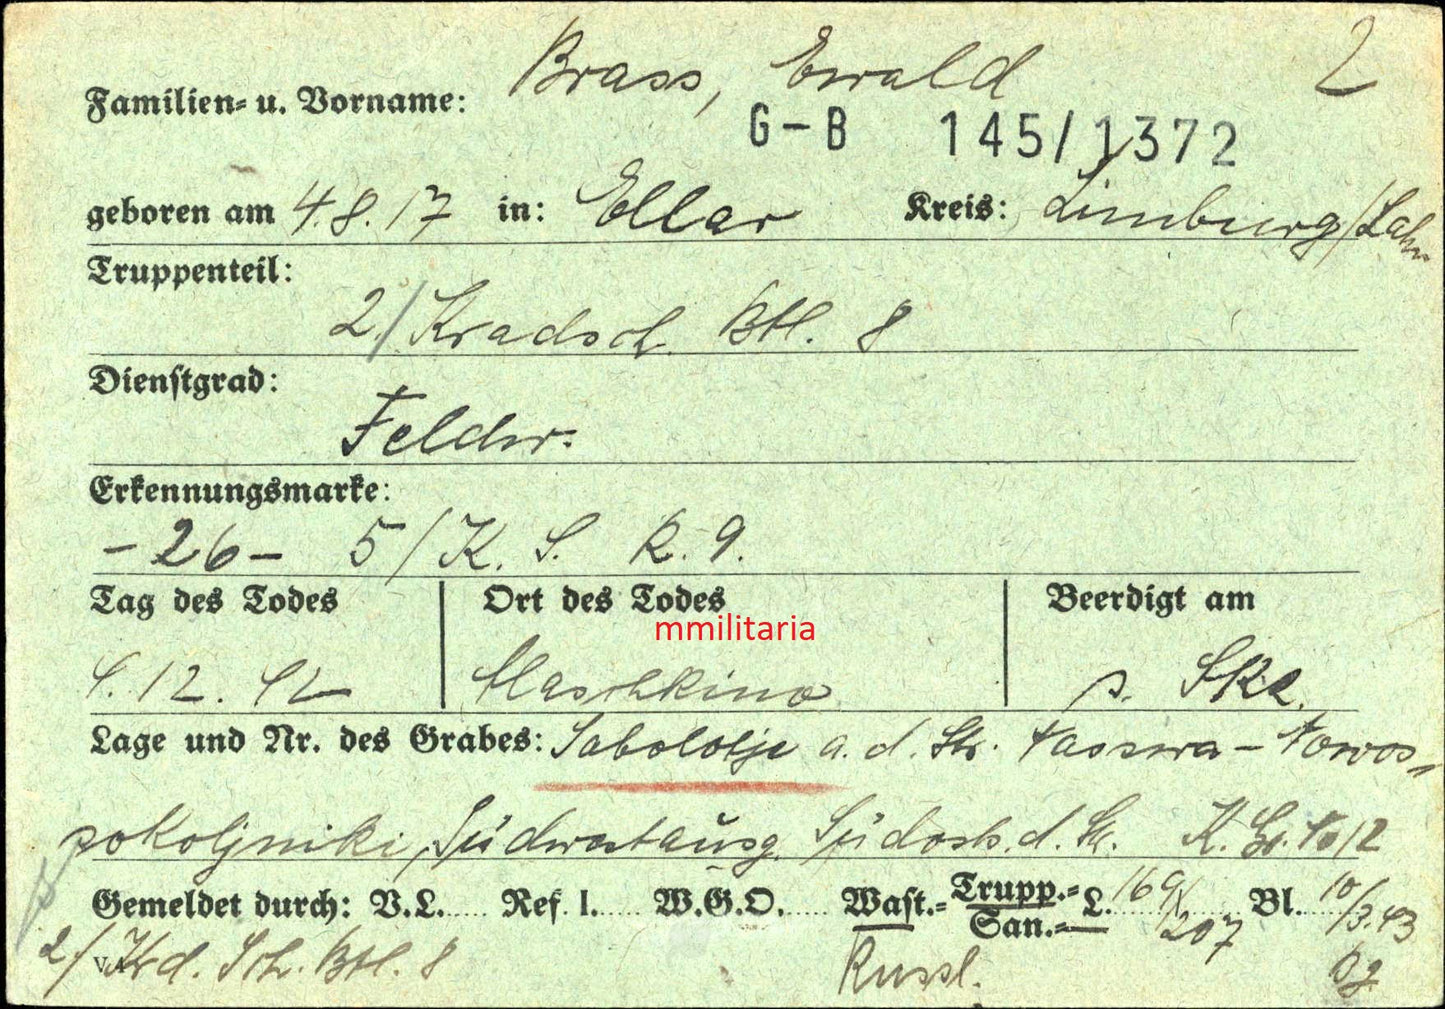 Brass, Ewald 2
Familien- u. Vorname:
G-B 145/1372
geboren am 4.8.17 in: Ellar Kreis: Limburg/Lahn
Truppenteil:
2./Kradsch. Btl. 8
Dienstgrad:
Feldw.
Erkennungsmarke:
-26- 5/K. S. R. 9.
Tag des Todes Ort des Todes Beerdigt am
mmilitaria
12. 42 s. Skz.
Lage und Nr. des Grabes: Sabolotje a. d. Str. Nasswa - Nowos-
sokoljniki, Südwestausg. Südosts. d. Str. K. Gr. No 12
Gemeldet durch: V.L..... Ref. I...... W.G.O..... Wast.- Trupp.- L. 169/ Bl. 10/3.43
San.- 207
2./Krd. Sch. Btl. 8 Russl.